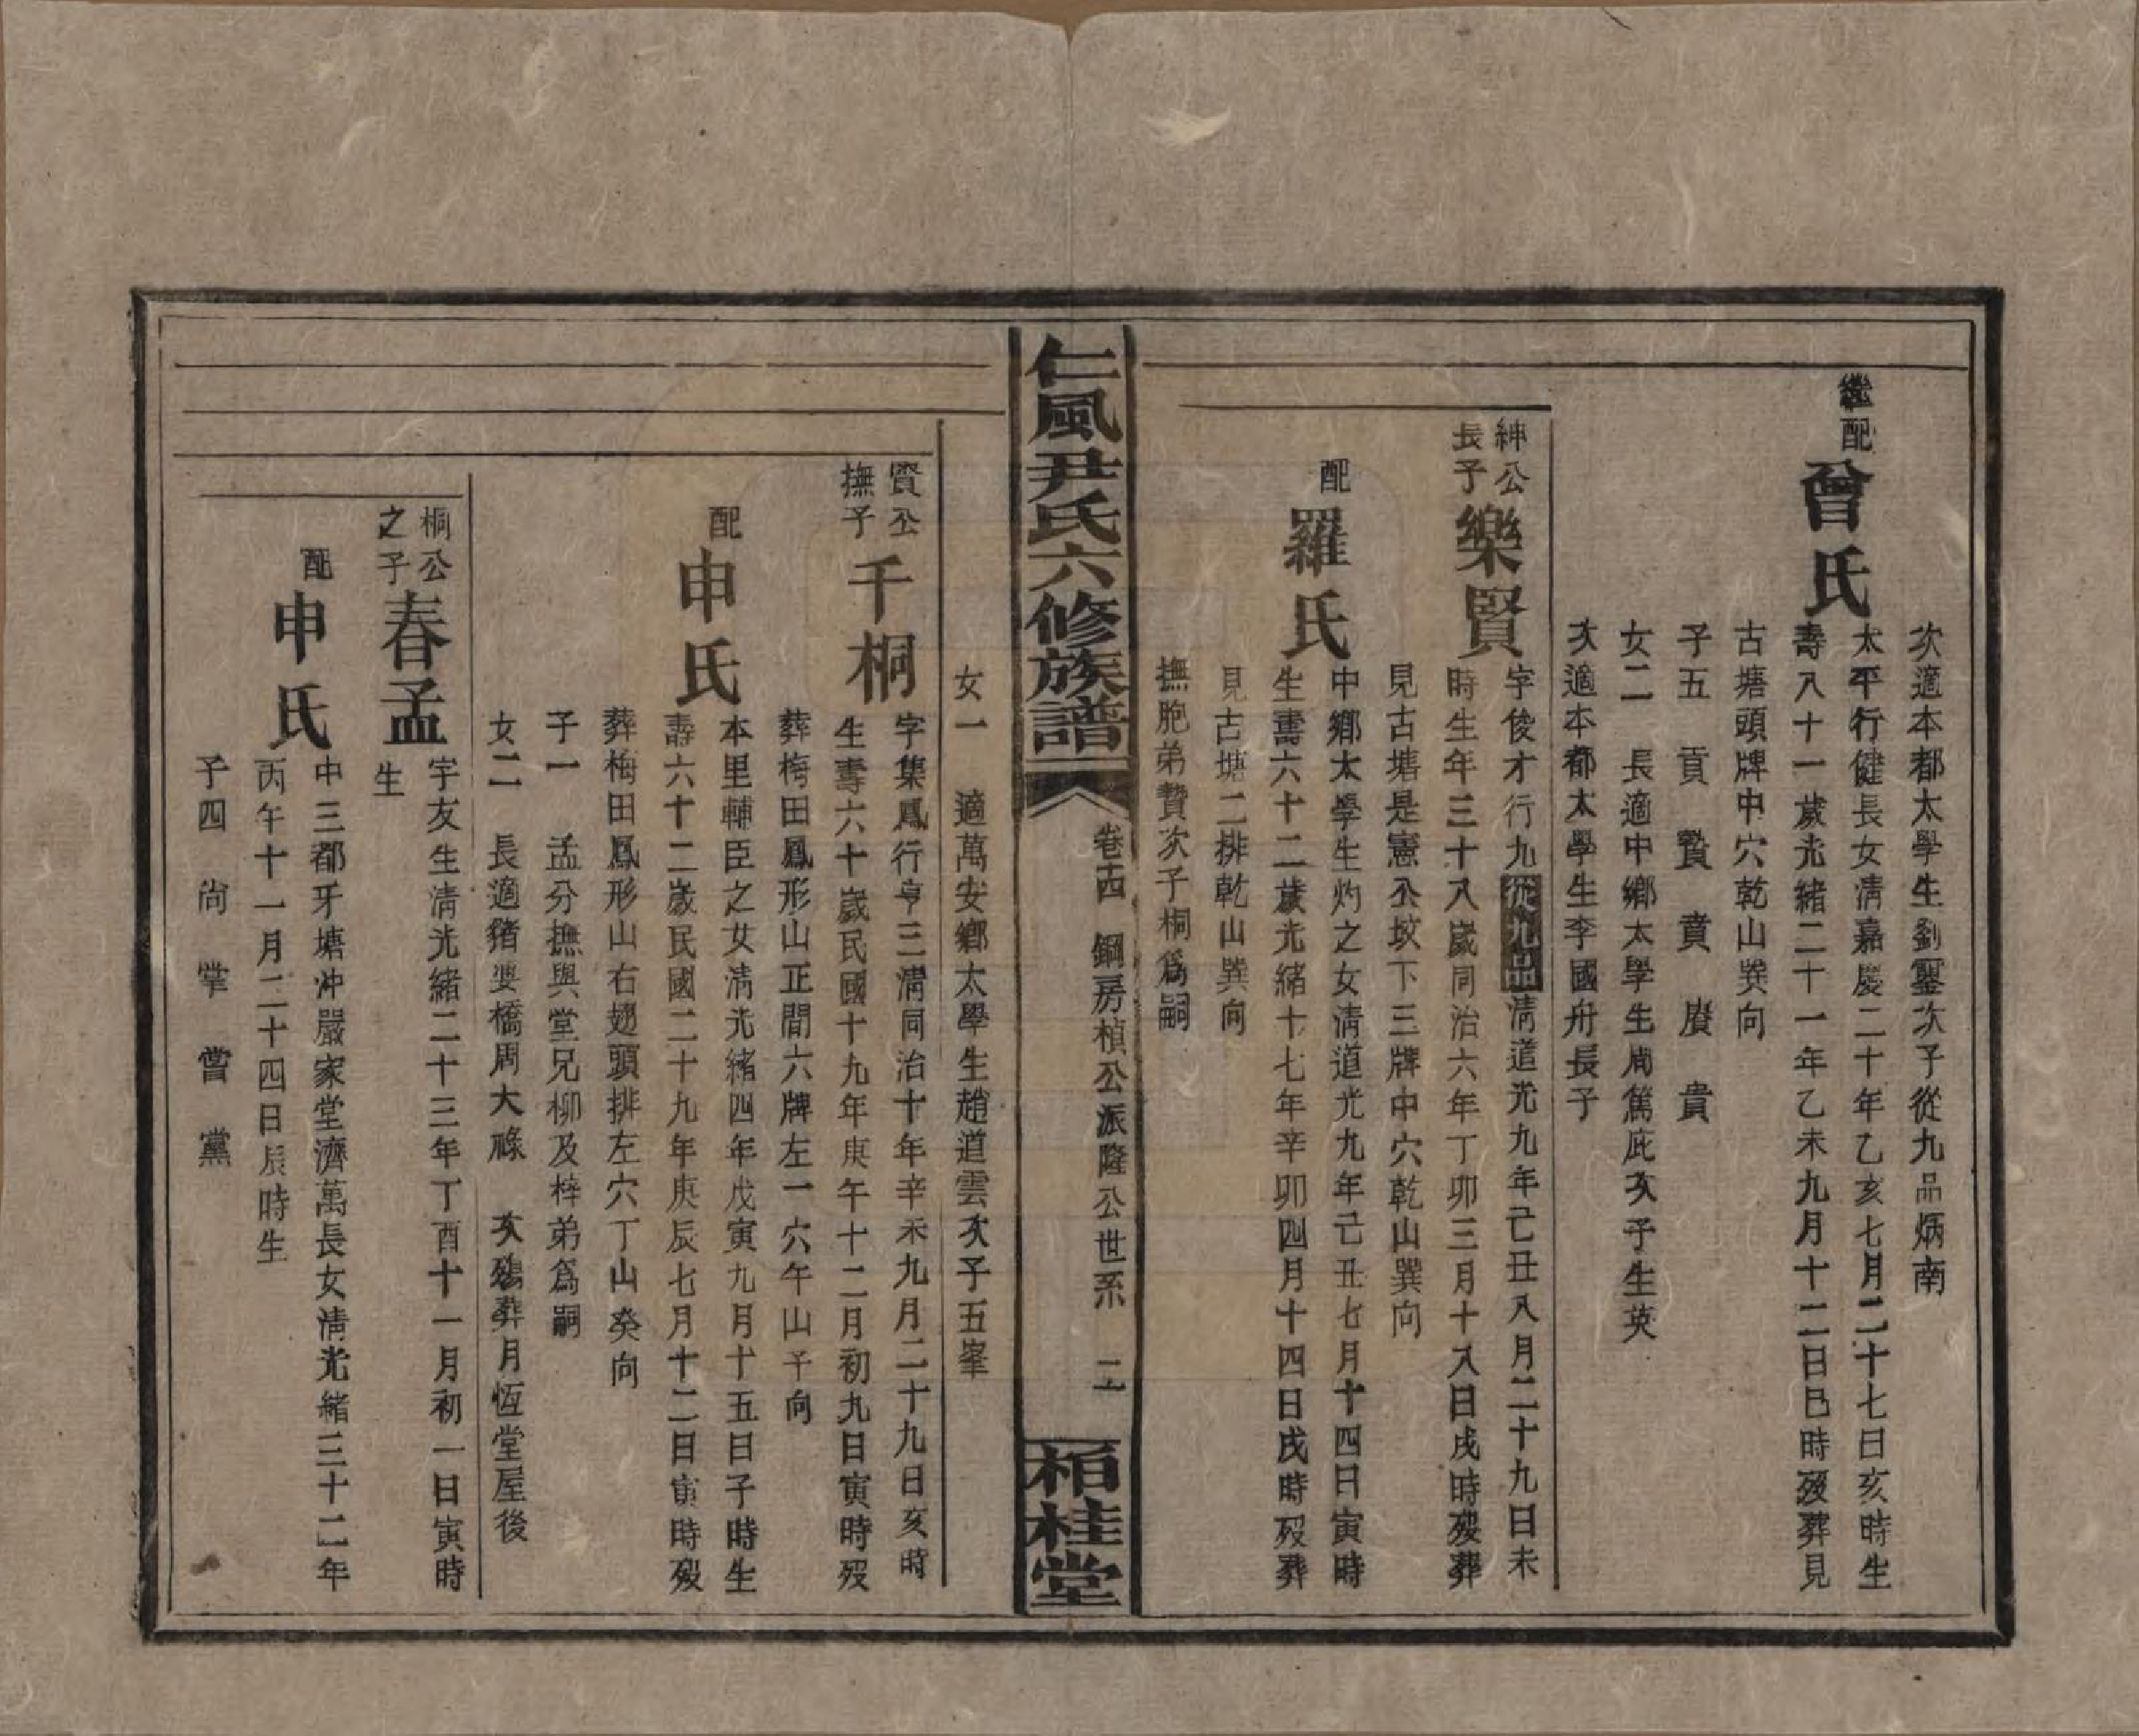 次適本都太學生劉鑒次子從九品炳南
繼配
曾氏
太平行健長女清嘉慶二十年乙亥七月二十七日亥時生
壽八十一歲光緒二十一年乙未九月十二日巳時歿葬見
古塘頭牌中穴乾山巽向
子五 貢 贊 賁 賡 貴
女二 長適中鄉太學生周篤庇次子生英
次適本都太學生李國舟長子
紳公
長子
樂賢
字俊才行九從九品清道光九年己丑八月二十九日未
時生年三十八歲同治六年丁卯三月十八日戌時歿葬
見古塘是憲公坟下三牌中穴乾山巽向
配
羅氏
中鄉太學生灼之女清道光九年己丑七月十四日寅時
生壽六十二歲光緒十七年辛卯四月十四日戌時歿葬
見古塘二排乾山巽向
撫胞弟贊次子桐爲嗣
仁風尹氏六修族譜
卷十四 鋼房楨公派隆公世系 二
栢桂堂
女一 適萬安鄉太學生趙道雲次子五峯
賢公
撫子
千桐
字集鳳行亨三清同治十年辛未九月二十九日亥時
生壽六十歲民國十九年庚午十二月初九日寅時歿
葬梅田鳳形山正間六牌左一穴午山子向
配
申氏
本里輔臣之女清光緒四年戊寅九月十五日子時生
壽六十二歲民國二十九年庚辰七月十二日寅時歿
葬梅田鳳形山右翅頭排左穴丁山癸向
子一 孟分撫與堂兄柳及梓弟爲嗣
女二 長適豬婆橋周大祿 次殤葬月恆堂屋後
桐公
之子
春孟
字友生清光緒二十三年丁酉十一月初一日寅時
生
配
申氏
中三都牙塘冲嚴家堂濟萬長女清光緒三十二年
丙午十一月二十四日辰時生
子四 尚 掌 嘗 黨